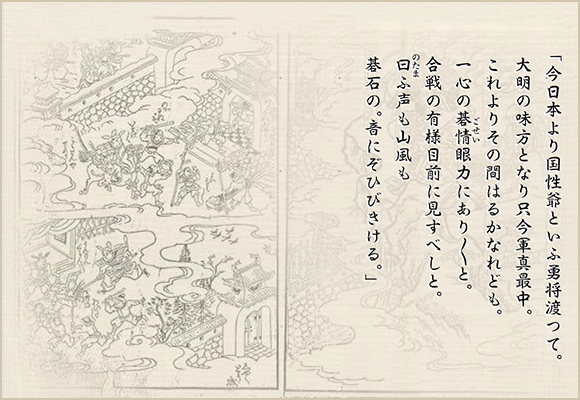 「今日本より国性爺といふ勇将渡つて。
大明の味方となり只今軍真最中。
これよりその間はるかなれども。
一心の碁情眼力にあり〳〵と。
合戦の有様目前に見すべしと。
曰ふ声も山風も
碁石の。音にぞひびきける。」
ごせい
のたま